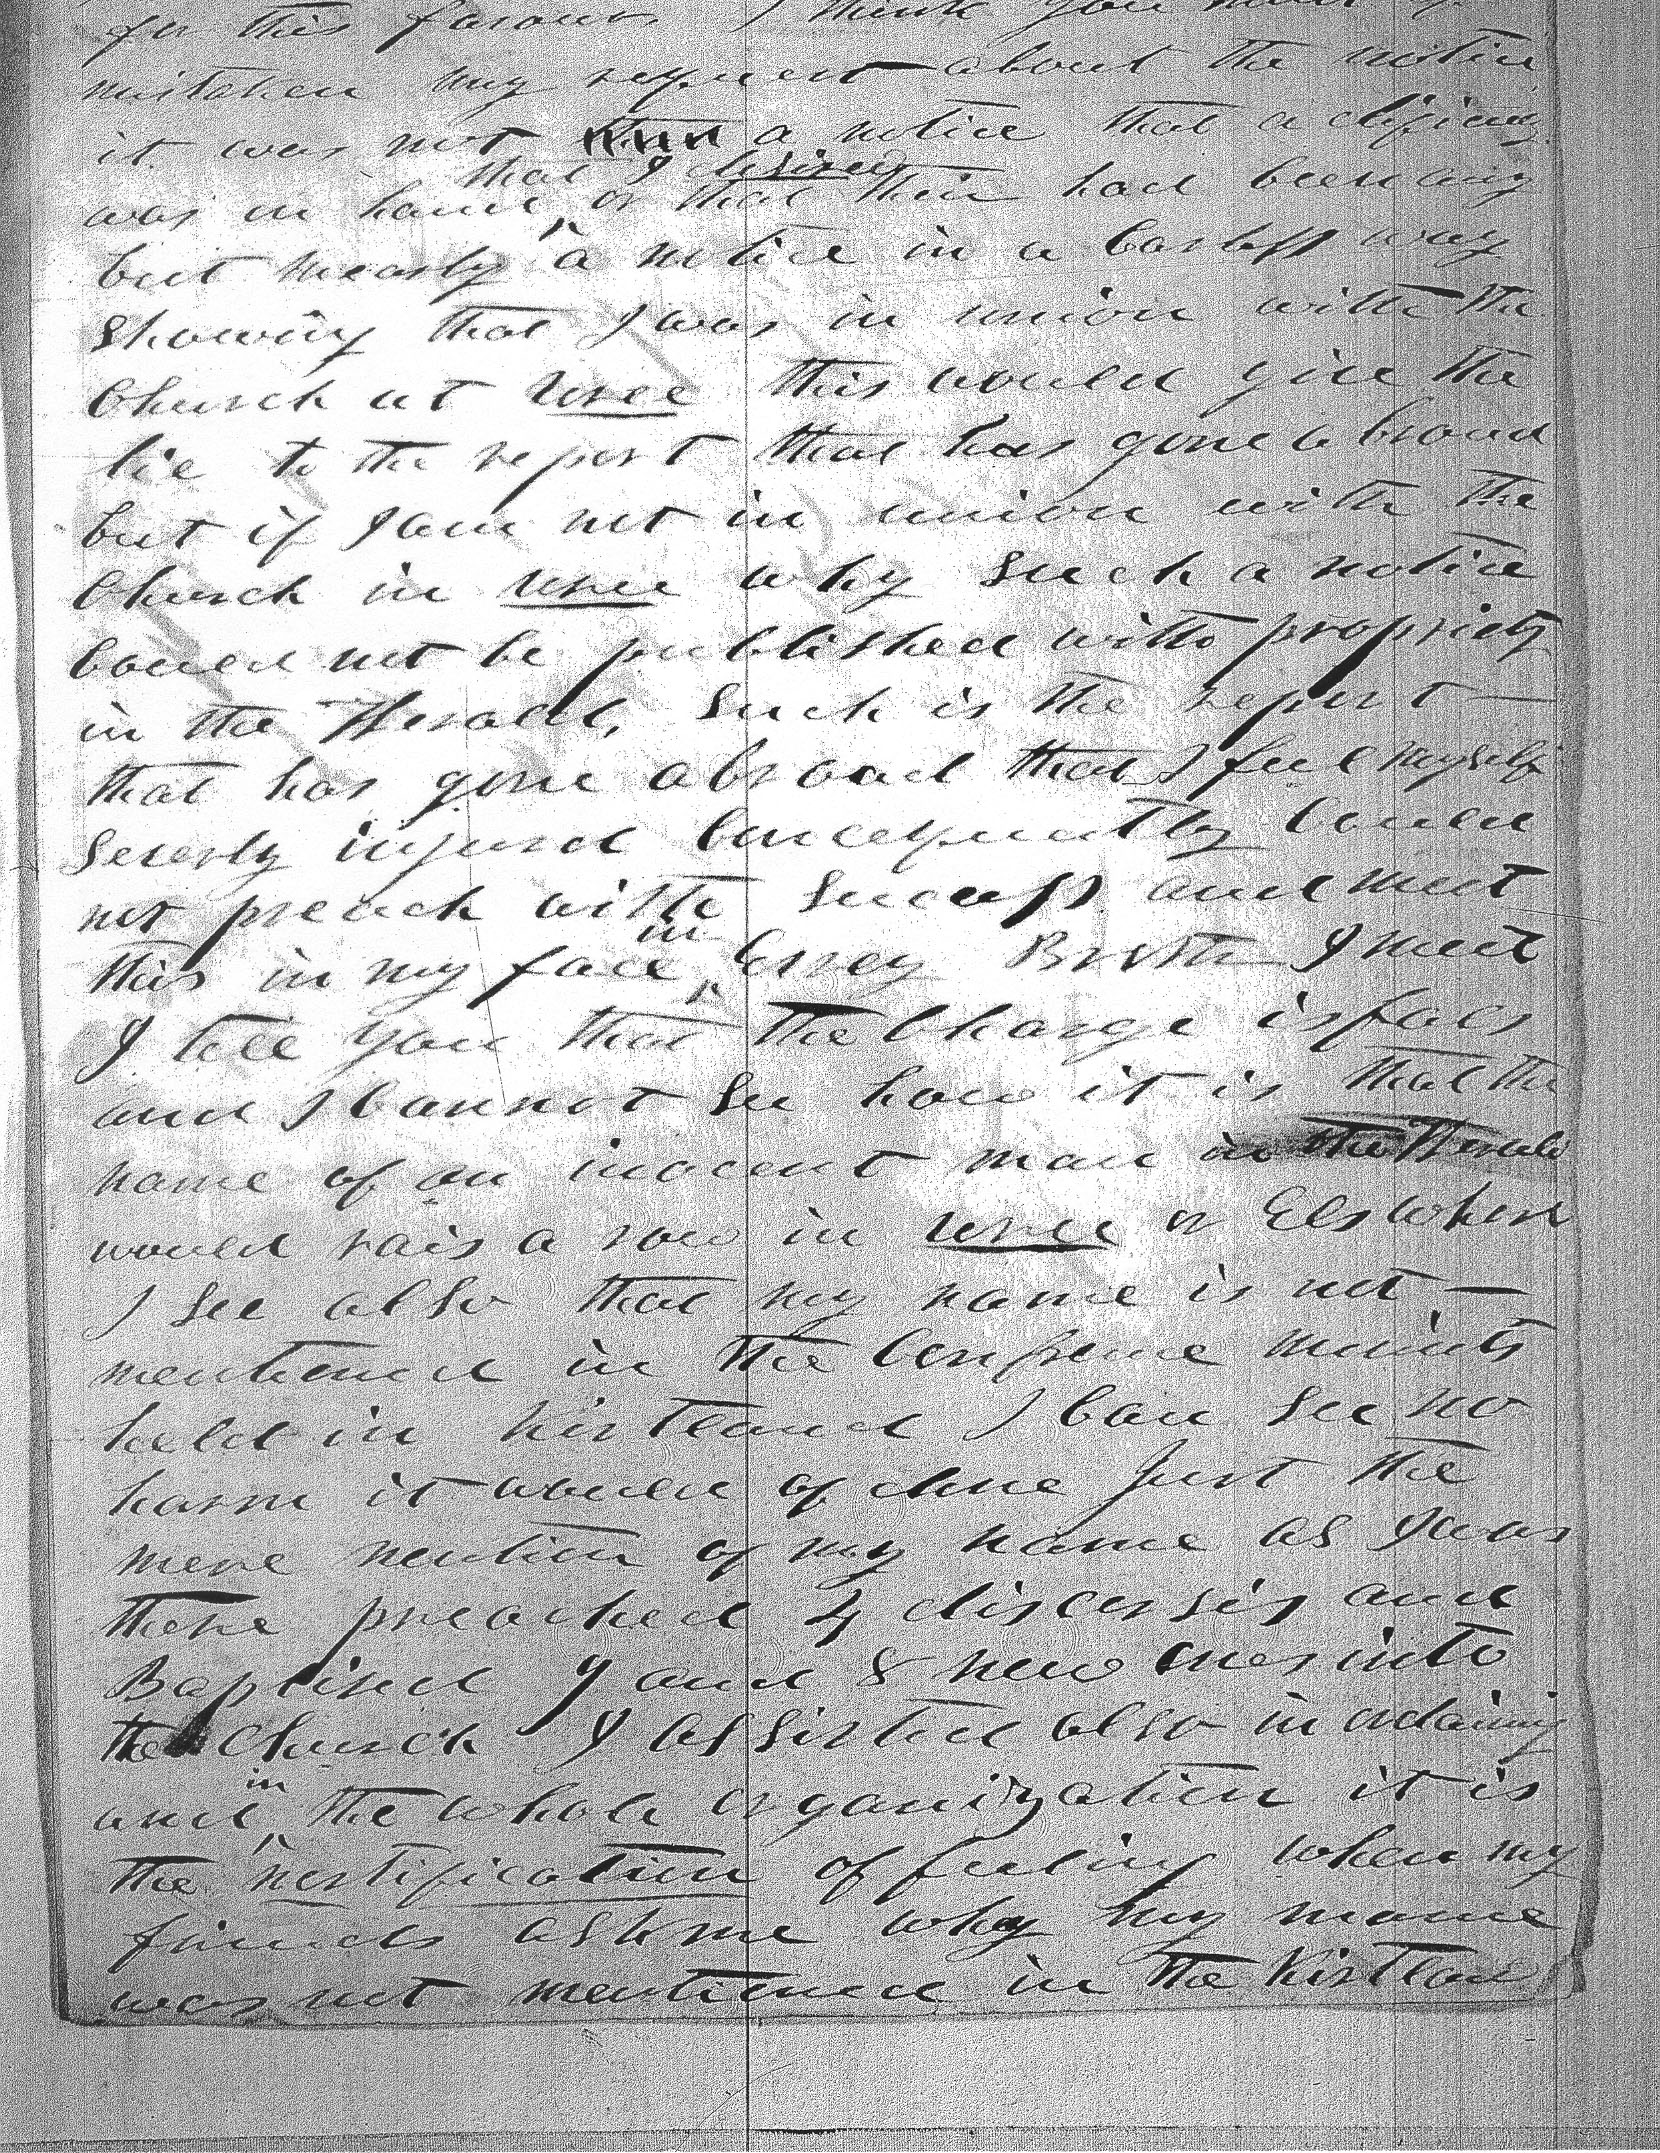 for this favour. I think you have
mistaken my request about the notice
it was not a notice that a dificuly
that I desired
was in hand, or that thin had been any
but mearly a notice in a Carless way
Showing that I was in union with the
Church at Uree this would give the
lie to the report that has gone abroad
but if I am not in union with the
Church in Uree why Such a notice
Could not be published with propriety
in the Herald, Such is the report
that has gone abroad that I feel myself
Severly injured Concequently Could
not preach with Success and meet
in
this in my face Evrey Brother I meet
I tell you that the Charge is fals
and I Cannot See how it is that the
name of an inocent man in the Herald
would rais a row in Uree or Elswhere
I See also that my name is not —
mentioned in the Confrence minuts
held in Kirtland I Can See no
harm it would of done Just the
mere mention of my name as I was
there preached 4 discorsis and
Baptised 7 and 8 new ones into
the Church I assisted also in ordaining
in
and the whole organization it is
the mortification of feeling when my
friends ask me why my name
was not mentioned in the Kirtland